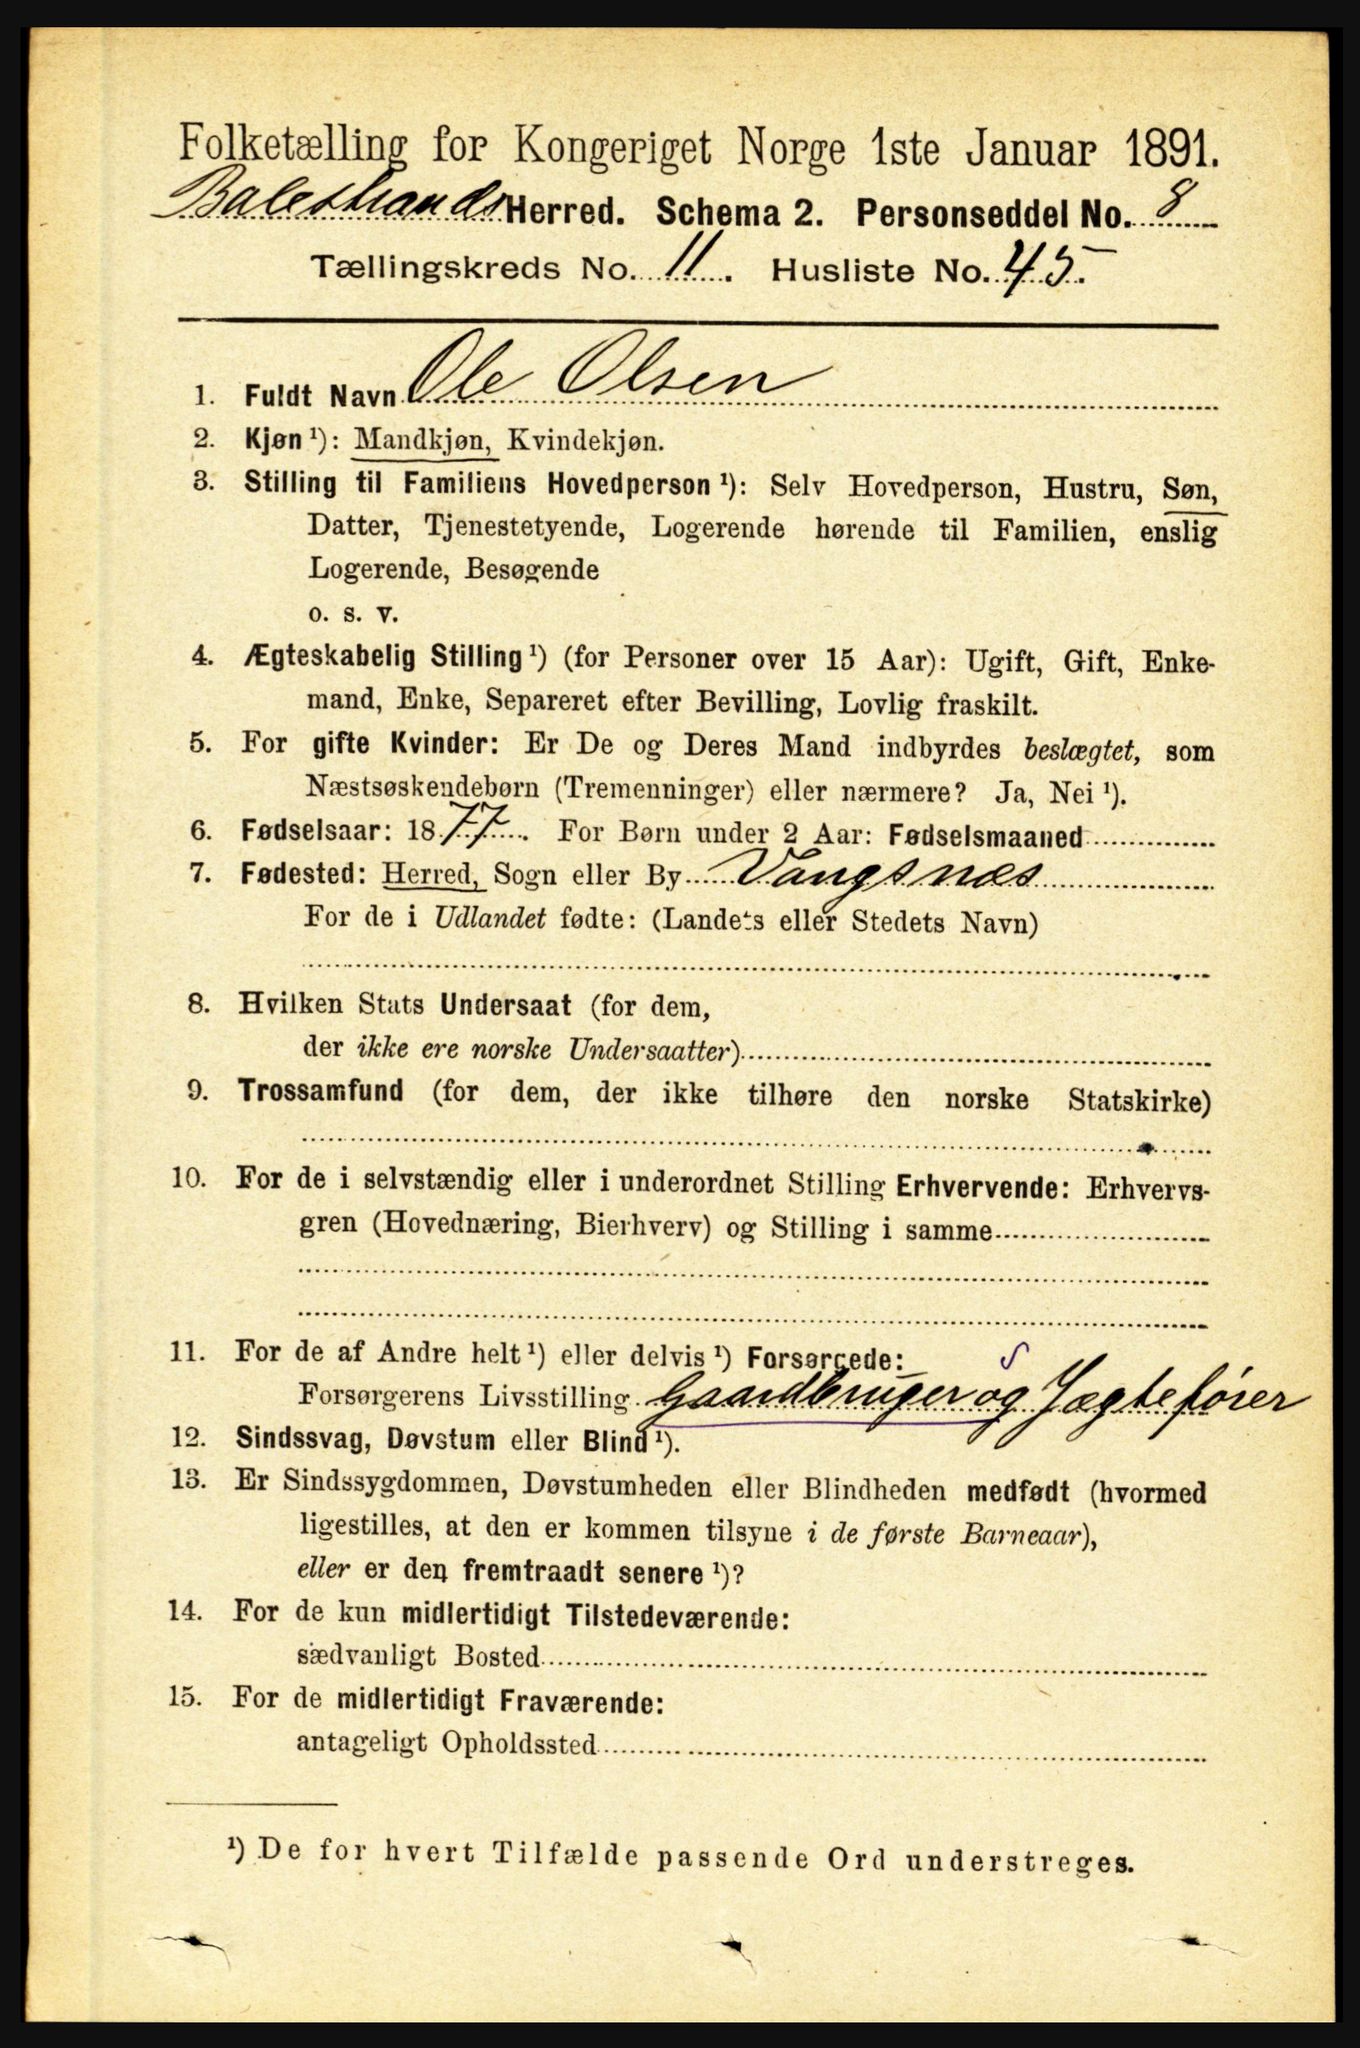 Folketælling for Kongeriget Norge 1ste Januar 1891.
Balestrands Herred. Schema 2. Personseddel No. 8
Tællingskreds No. 11. Husliste No. 45.
1. Fuldt Navn Ole Olsen
2. Kjøn ¹): Mandkjøn, Kvindekjøn.
3. Stilling til Familiens Hovedperson ¹): Selv Hovedperson, Hustru, Søn,
Datter, Tjenestetyende, Logerende hørende til Familien, enslig
Logerende, Besøgende
o. s. v.
4. Ægteskabelig Stilling ¹) (for Personer over 15 Aar): Ugift, Gift, Enke-
mand, Enke, Separeret efter Bevilling, Lovlig fraskilt.
5. For gifte Kvinder: Er De og Deres Mand indbyrdes beslægtet, som
Næstsøskendebørn (Tremenninger) eller nærmere? Ja, Nei ¹).
6. Fødselsaar: 1877. For Børn under 2 Aar: Fødselsmaaned
7. Fødested: Herred, Sogn eller By Vangsnæs
For de i Udlandet fødte: (Landets eller Stedets Navn)
8. Hvilken Stats Undersaat (for dem,
der ikke ere norske Undersaatter)
9. Trossamfund (for dem, der ikke tilhøre den norske Statskirke)
10. For de i selvstændig eller i underordnet Stilling Erhvervende: Erhvervs-
gren (Hovednæring, Bierhverv) og Stilling i samme
11. For de af Andre helt ¹) eller delvis ¹) Forsørgede:
Forsørgerens Livsstilling Gaardbruger og Jægtefører
12. Sindssvag, Døvstum eller Blind ¹).
13. Er Sindssygdommen, Døvstumheden eller Blindheden medfødt (hvormed
ligestilles, at den er kommen tilsyne i de første Barneaar),
eller er den fremtraadt senere ¹)?
14. For de kun midlertidigt Tilstedeværende:
sædvanligt Bosted
15. For de midlertidigt Fraværende:
antageligt Opholdssted
¹) De for hvert Tilfælde passende Ord understreges.